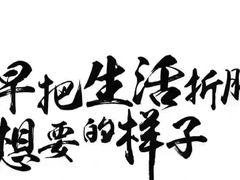 早把生活折服
想要的样子